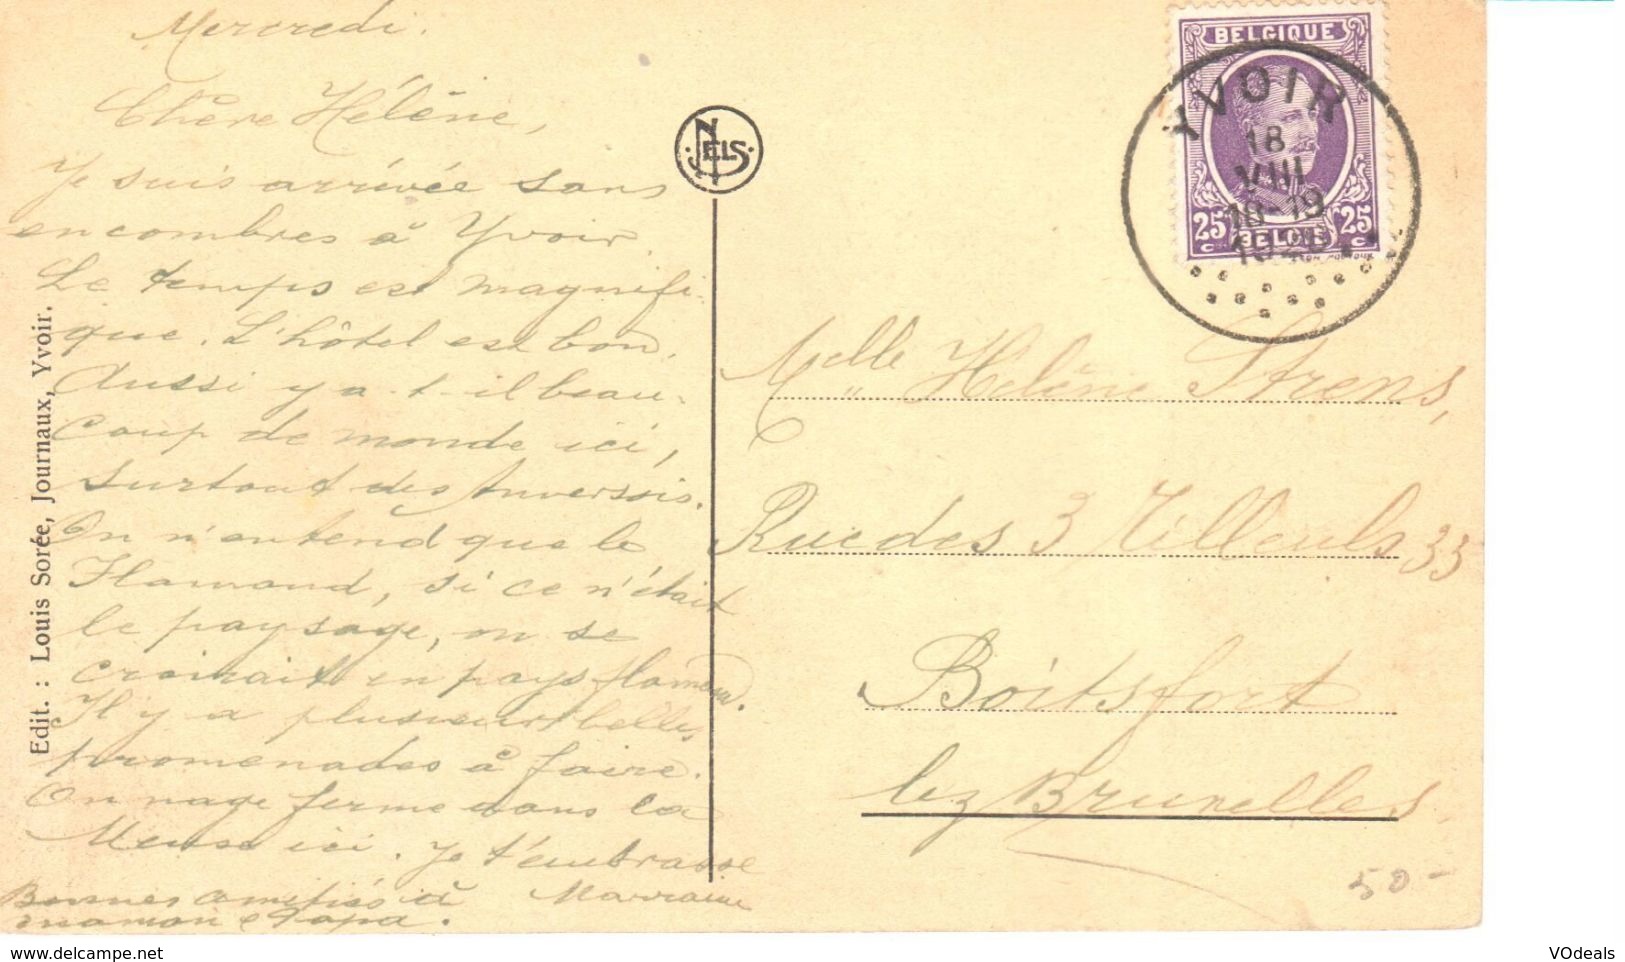 Mercredi.
Chère Hélène,
Je suis arrivée sans
encombres à Yvoir.
Le temps est magnifi-
que. L'hôtel est bon.
Aussi y a-t-il beau-
coup de monde ici,
surtout des Anversois.
On n'entend que le
Flamand, si ce n'était
le paysage, on se
croirait en pays flamand.
Il y a plusieurs belles
promenades à faire.
On nage ferme dans la
Meuse ici. Je t'embrasse
Marraine
Bonnes amitiés à
maman & Papa.
Edit. : Louis Sorée, Journaux, Yvoir.
NELS
BELGIQUE
25 c BELGIË 25 c
YVOIR
18
VIII
18-19
Melle Hélène Strens,
Rue des 3 Tilleuls 35
Boitsfort
lez Bruxelles
50-
www.delcampe.net
VOdeals